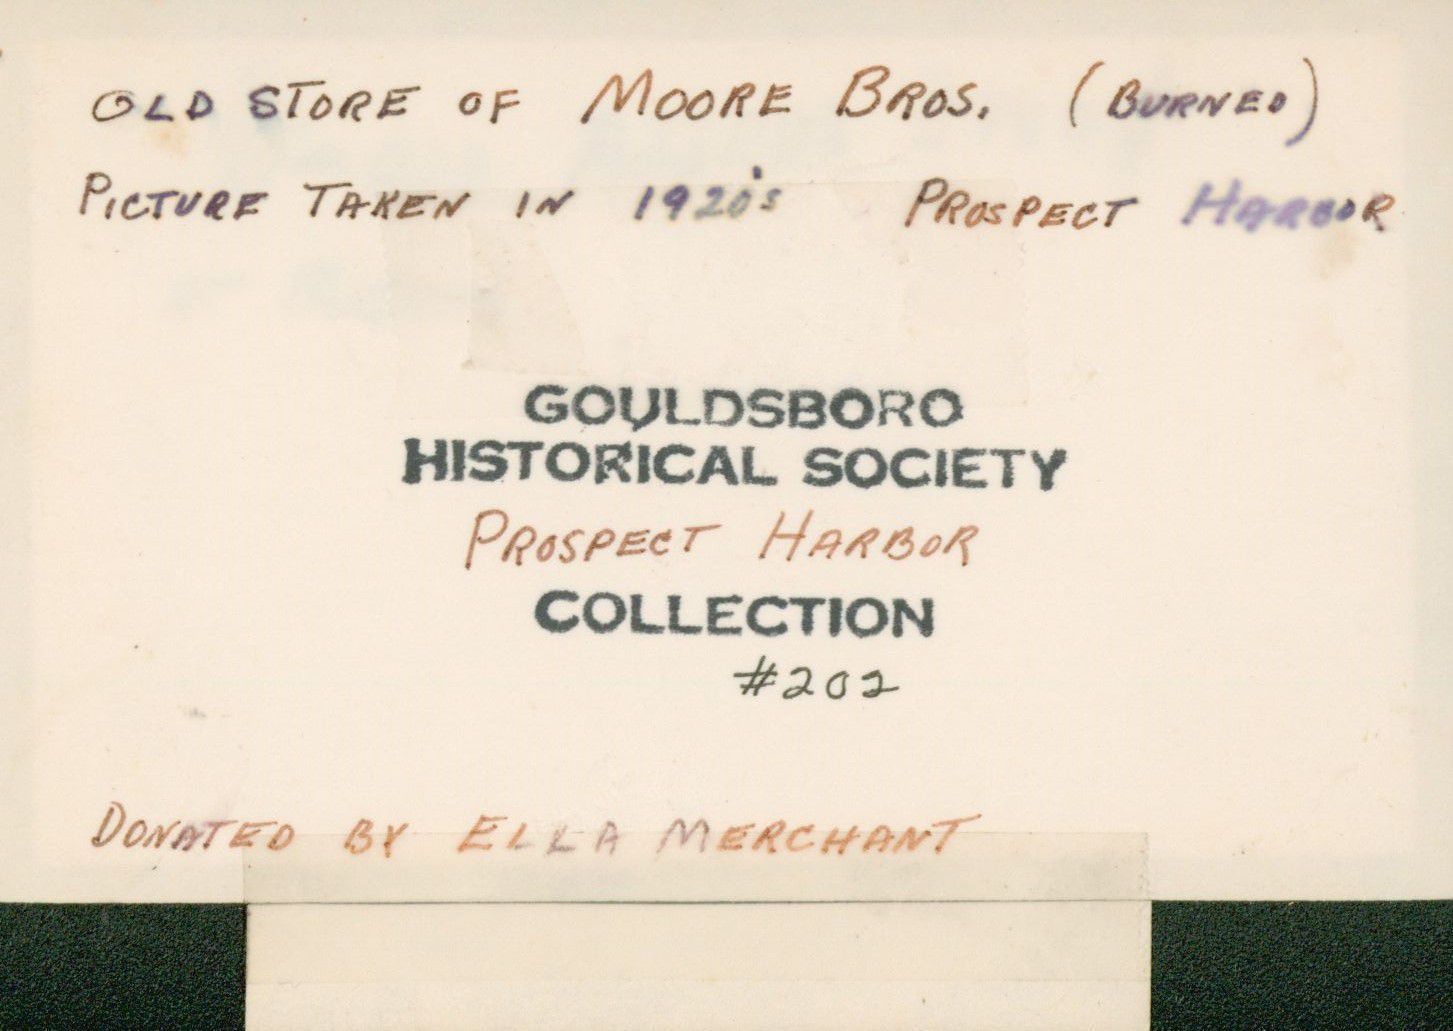 OLD STORE OF MOORE BROS. (BURNED)
PICTURE TAKEN IN 1920's PROSPECT HARBOR
GOULDSBORO
HISTORICAL SOCIETY
PROSPECT HARBOR
COLLECTION
#202
DONATED BY ELLA MERCHANT